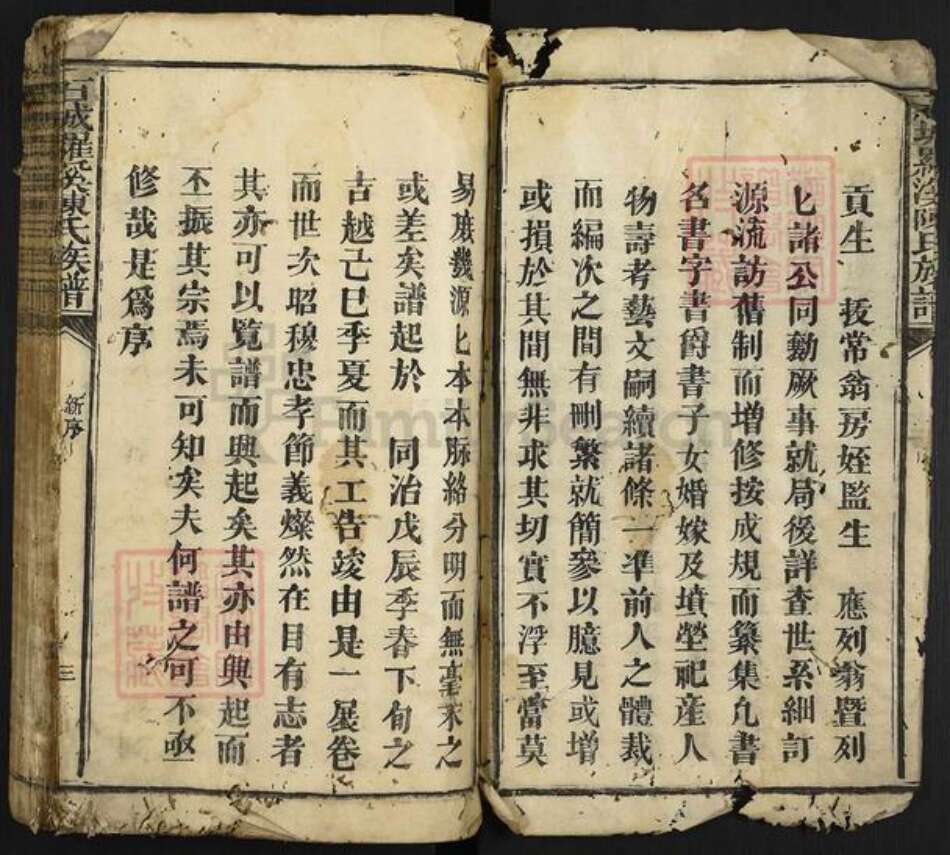 貢生　授常翁房姪監生　應列翁暨列
匕諸公同勷厥事就局後詳查世系細訂
源流訪舊制而增修按成規而纂集凢書
名書字書爵書子女婚嫁及墳塋祀産人
物壽考藝文嗣續諸條一準前人之體裁
而編次之間有刪繁就簡參以臆見或增
或損於其間無非求其切實不浮至當莫
易庶幾源匕本本脉絡分明而無毫末之
或差矣譜起於　同治戊辰季春下旬之
古越己巳季夏而其工告竣由是一展卷
而世次昭穆忠孝節義燦然在目有志者
其亦可以覧譜而興起矣其亦由興起而
丕振其宗焉未可知矣夫何譜之可不亟
修哉是爲序
石城羅溪陳氏族譜
新序
三
FamilySearch